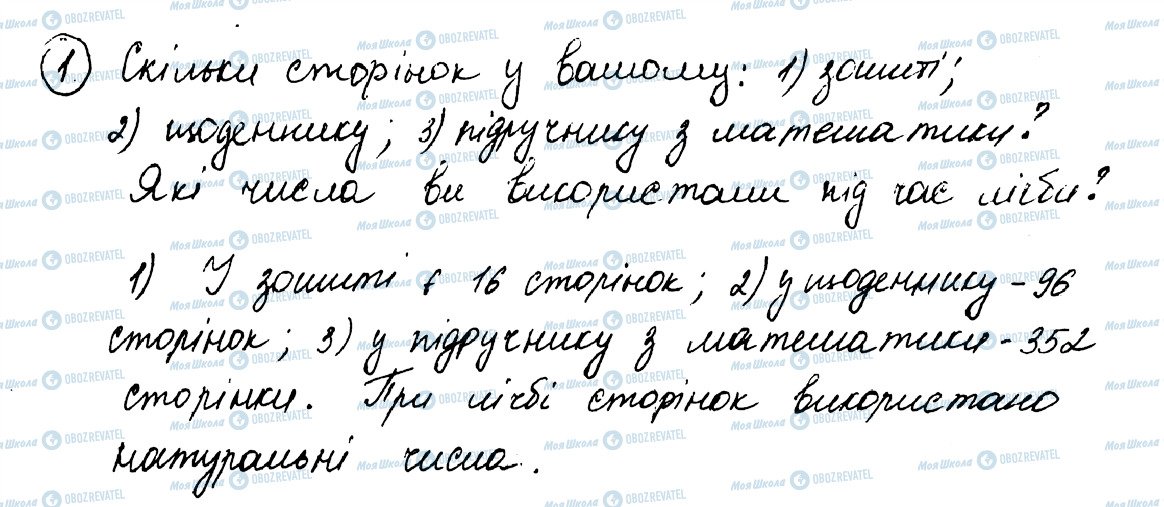 1. Скільки сторінок у вашому: 1) зошиті;
2) щоденнику; 3) підручнику з математики?
Які числа ви використали під час лічби?
1) У зошиті є 16 сторінок; 2) у щоденнику - 96
сторінок; 3) у підручнику з математики - 352
сторінки. При лічбі сторінок використано
натуральні числа.